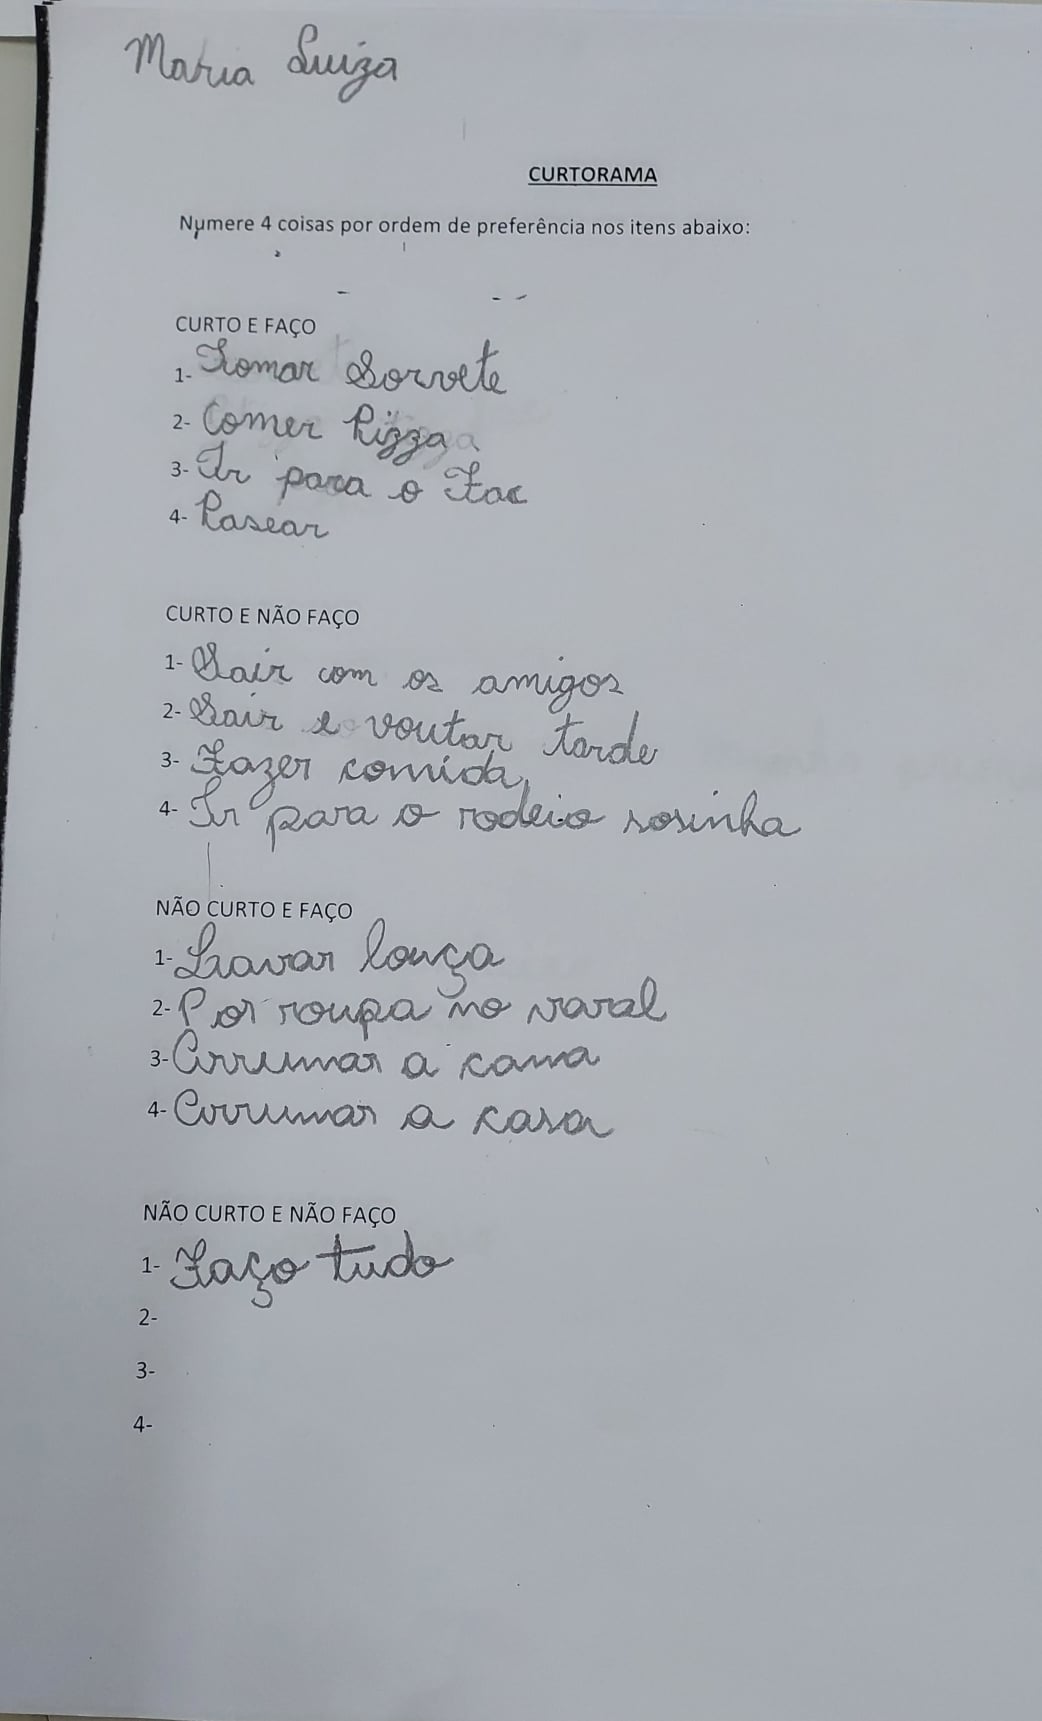 Maria Luiza
CURTORAMA
Numere 4 coisas por ordem de preferência nos itens abaixo:
CURTO E FAÇO
1- Tomar Sorvete
2- Comer Pizza
3- Ir para o Fac
4- Pasear
CURTO E NÃO FAÇO
1- Sair com os amigos
2- Sair e voutar tarde
3- Fazer comida
4- Ir para o rodeio sosinha
NÃO CURTO E FAÇO
1- Lavar louça
2- Por roupa no varal
3- Arrumar a cama
4- Arrumar a casa
NÃO CURTO E NÃO FAÇO
1- Faço tudo
2-
3-
4-